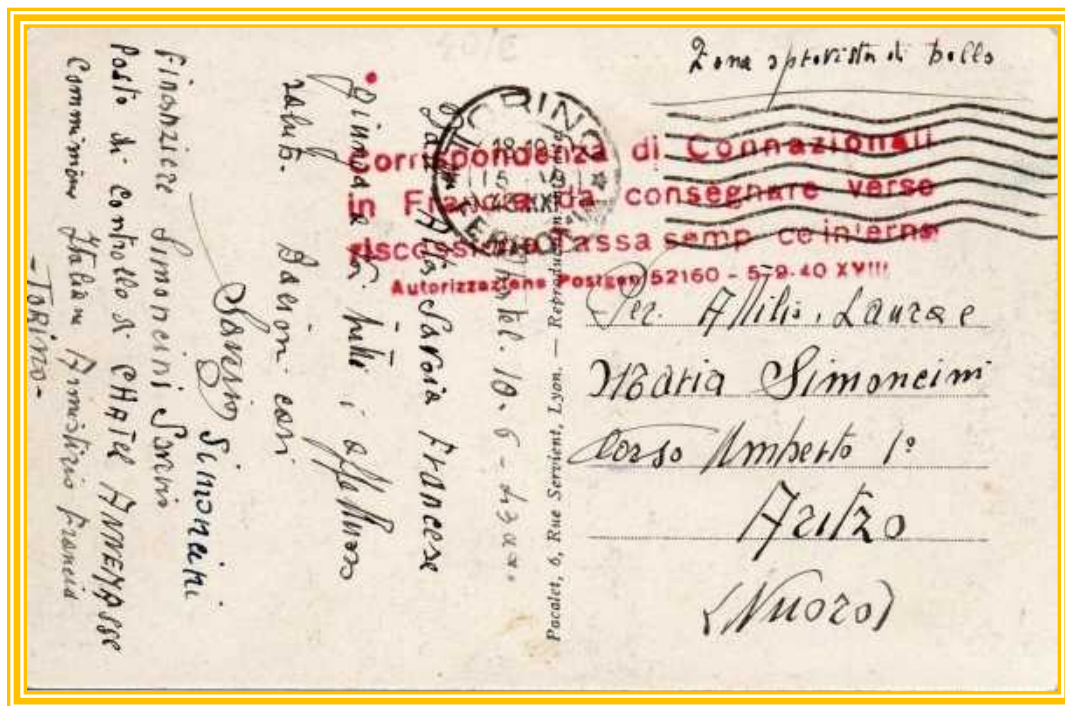 Zona sprovista di bollo
TORINO
FERROVIA
Corrispondenza di Connazionali
in Francia da consegnare verso
riscossione tassa semplice interna
Autorizzazione Postgen 52160 - 5-9-40 XVIII
Per. Attilio, Laura e
Maria Simoncini
Corso Umberto 1º
Aritzo
(Nuoro)
Pacalet, 6, Rue Servient, Lyon. — Reproduction
Chatel. 10. 6 -
Alta Savoia Francese
Giunga a voi tutti i affettuoso
saluto. Bacioni cari
Simoncini
Finanziere Simoncini
Posto di Controllo di CHATEL ANNEMASSE
Commissione Italiana Armistizio Francia
-TORINO-